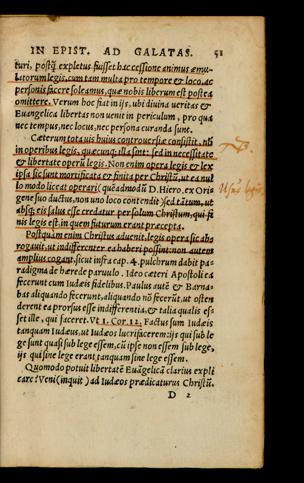 IN EPIST. AD GALATAS. 51
turi, postq̃ expletus fuisset hac cessione animus æmu-
latorum legis, cum tam multa pro tempore & loco, ac
personis facere soleamus, quæ nobis liberum est postea
omittere. Verum hoc fiat in ijs, ubi diuina ueritas &
Euangelica libertas non uenit in periculum, pro qua
nec tempus, nec locus, nec persona curanda sunt.
Cæterum tota uis huius controuersiæ consistit, nõ
in operibus legis, quæcunq; illa sint: sed in necessitate
& libertate operũ legis. Non enim opera legis & lex
ipsa sic sunt mortificata & finita per Christũ, ut ea nul
lo modo liceat operari (quẽadmodũ D. Hiero. ex Ori
gene suo ductus, non uno loco contendit) sed tãtum, ut
absq; eis salus esse credatur per solum Christum, qui fi-
nis legis est, in quem futurum erant præcepta.
Postquam enim Christus aduenit, legis opera sic ab-
rogauit, ut indifferenter ea haberi possint: non autem
amplius cogant. sicut infra cap. 4. pulchrum dabit pa-
radigma de hærede paruulo. Ideo cæteri Apostoli ea
fecerunt cum Iudæis fidelibus. Paulus autẽ & Barna-
bas aliquando fecerunt, aliquando nõ fecerũt, ut osten
derent ea prorsus esse indifferentia, & talia qualis es-
set ille, qui faceret. Vt 1. Cor. 12. Factus sum Iudæis
tanquam Iudæus, ut Iudæos lucrifacerem: ijs qui sub le
ge sunt quasi sub lege essem, cũ ipse non essem sub lege,
ijs qui sine lege erant, tanquam sine lege essem.
Quomodo potuit libertatẽ Euãgelicã clarius expli
care? Veni (inquit) ad Iudæos prædicaturus Christũ.
D 2